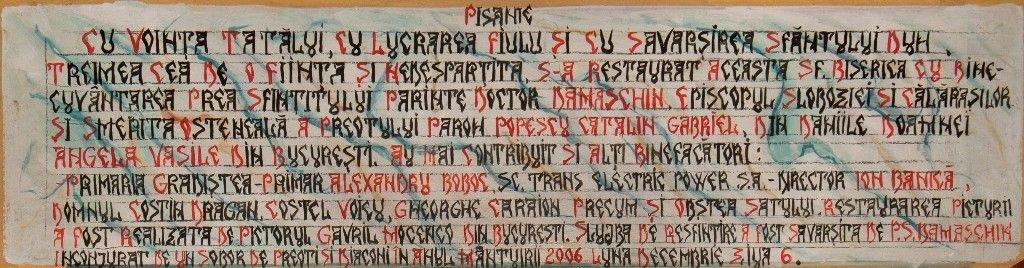 PISANIE
CU VOINTA TATĂLUI, CU LUCRAREA FIULUI ȘI CU SAVARȘIREA SFÂNTULUI DUH,
TREIMEA CEA DE O FIINTA ȘI NEDESPARTITA, S-A RESTAURAT ACEASTA SF. BISERICA CU BINE-
CUVÂNTAREA PREA SFINTITULUI PARINTE DOCTOR DAMASCHIN, EPISCOPUL SLOBOZIEI SI CĂLĂRASILOR
ȘI SMERITA OSTENEALĂ A PREOTULUI PAROH POPESCU CATALIN GABRIEL, DIN DANIILE DOAMNEI
ANGELA VASILE DIN BUCUREȘTI. AU MAI CONTRIBUIT SI ALTI BINEFACĂTORI:
PRIMARIA GRADISTEA-PRIMAR ALEXANDRU BOBOC, SC. TRANS ELECTRIC POWER S.A.-DIRECTOR ION BANICĂ,
DOMNUL COSTIN DRAGAN, COSTEL VOICU, GHEORGHE CARAION PRECUM ȘI OBSTEA SATULUI. RESTAURAREA PICTURII
A FOST REALIZATA DE PICTORUL GAVRIL MOCENCO DIN BUCURESTI. SLUJBA DE RESFINTIRE A FOST SAVARȘITA DE P.S. DAMASCHIN
INCONJURAT DE UN SOBOR DE PREOTI SI DIACONI IN ANUL MÂNTUIRII 2006 LUNA DECEMBRIE ZIUA 6.